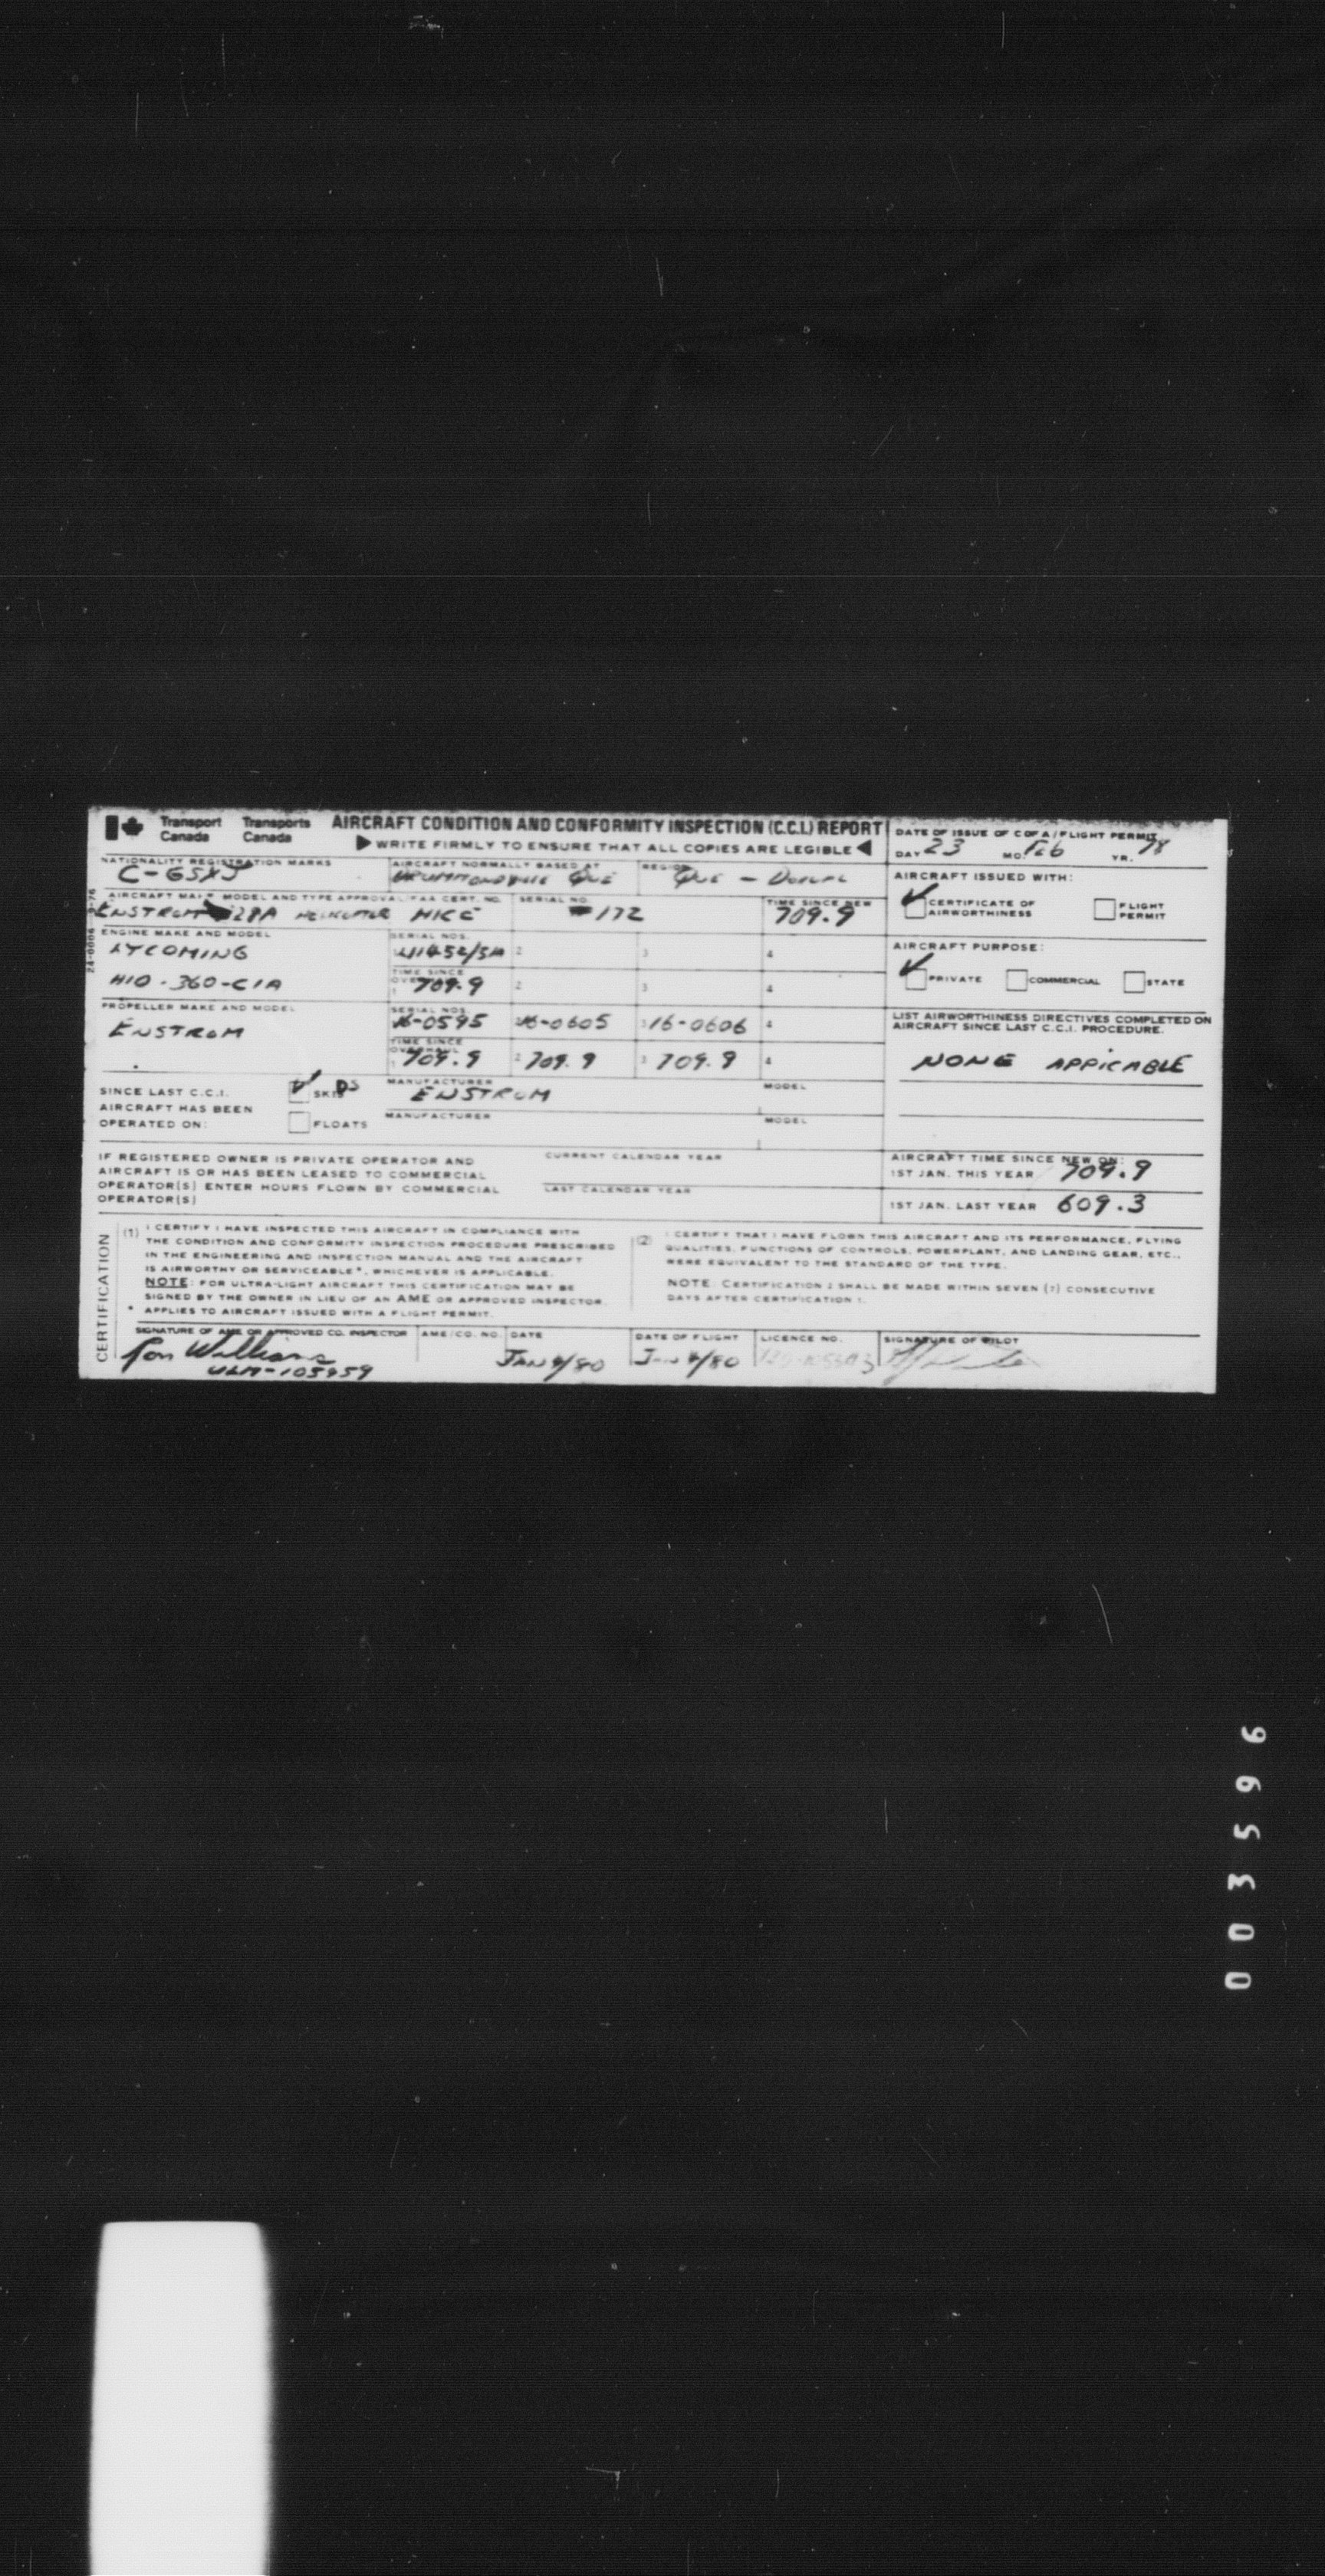 Transport Canada Transports Canada
AIRCRAFT CONDITION AND CONFORMITY INSPECTION (C.C.I.) REPORT
▶WRITE FIRMLY TO ENSURE THAT ALL COPIES ARE LEGIBLE◀
DATE OF ISSUE OF C OF A / FLIGHT PERMIT
DAY 23 MO. FEB YR. 78
NATIONALITY REGISTRATION MARKS
C-GSXJ
AIRCRAFT NORMALLY BASED AT
DRUMMONDVILLE QUE
REGION
QUE - DORVAL
AIRCRAFT ISSUED WITH:
CERTIFICATE OF AIRWORTHINESS
FLIGHT PERMIT
AIRCRAFT MAKE MODEL AND TYPE APPROVAL/FAA CERT. NO.
ENSTROM 28A HELICOPTER H1CE
SERIAL NO.
172
TIME SINCE NEW
709.9
ENGINE MAKE AND MODEL
LYCOMING
HIO-360-C1A
SERIAL NOS.
2 3 4
TIME SINCE
1 709.9 2 3 4
AIRCRAFT PURPOSE:
PRIVATE COMMERCIAL STATE
PROPELLER MAKE AND MODEL
ENSTROM
SERIAL NOS.
16-0595 16-0605 3 16-0606 4
TIME SINCE OVERHAUL
1 709.9 2 709.9 3 709.9 4
LIST AIRWORTHINESS DIRECTIVES COMPLETED ON
AIRCRAFT SINCE LAST C.C.I. PROCEDURE.
NONE APPICABLE
SINCE LAST C.C.I.
AIRCRAFT HAS BEEN
OPERATED ON:
SKIDS
FLOATS
MANUFACTURER
ENSTROM
MODEL
MANUFACTURER
MODEL
IF REGISTERED OWNER IS PRIVATE OPERATOR AND
AIRCRAFT IS OR HAS BEEN LEASED TO COMMERCIAL
OPERATOR(S) ENTER HOURS FLOWN BY COMMERCIAL
OPERATOR(S)
CURRENT CALENDAR YEAR
LAST CALENDAR YEAR
AIRCRAFT TIME SINCE NEW ON:
1ST JAN. THIS YEAR 709.9
1ST JAN. LAST YEAR 609.3
CERTIFICATION
(1) I CERTIFY I HAVE INSPECTED THIS AIRCRAFT IN COMPLIANCE WITH
THE CONDITION AND CONFORMITY INSPECTION PROCEDURE PRESCRIBED
IN THE ENGINEERING AND INSPECTION MANUAL AND THE AIRCRAFT
IS AIRWORTHY OR SERVICEABLE*, WHICHEVER IS APPLICABLE.
NOTE: FOR ULTRA-LIGHT AIRCRAFT THIS CERTIFICATION MAY BE
SIGNED BY THE OWNER IN LIEU OF AN AME OR APPROVED INSPECTOR.
* APPLIES TO AIRCRAFT ISSUED WITH A FLIGHT PERMIT.
(2) I CERTIFY THAT I HAVE FLOWN THIS AIRCRAFT AND ITS PERFORMANCE, FLYING
QUALITIES, FUNCTIONS OF CONTROLS, POWERPLANT, AND LANDING GEAR, ETC.,
WERE EQUIVALENT TO THE STANDARD OF THE TYPE.
NOTE: CERTIFICATION 2 SHALL BE MADE WITHIN SEVEN (7) CONSECUTIVE
DAYS AFTER CERTIFICATION 1.
SIGNATURE OF AME OR APPROVED CO. INSPECTOR
Ron Williams
ULM-105959
AME/CO. NO.
DATE
DATE OF FLIGHT
LICENCE NO.
SIGNATURE OF PILOT
003596